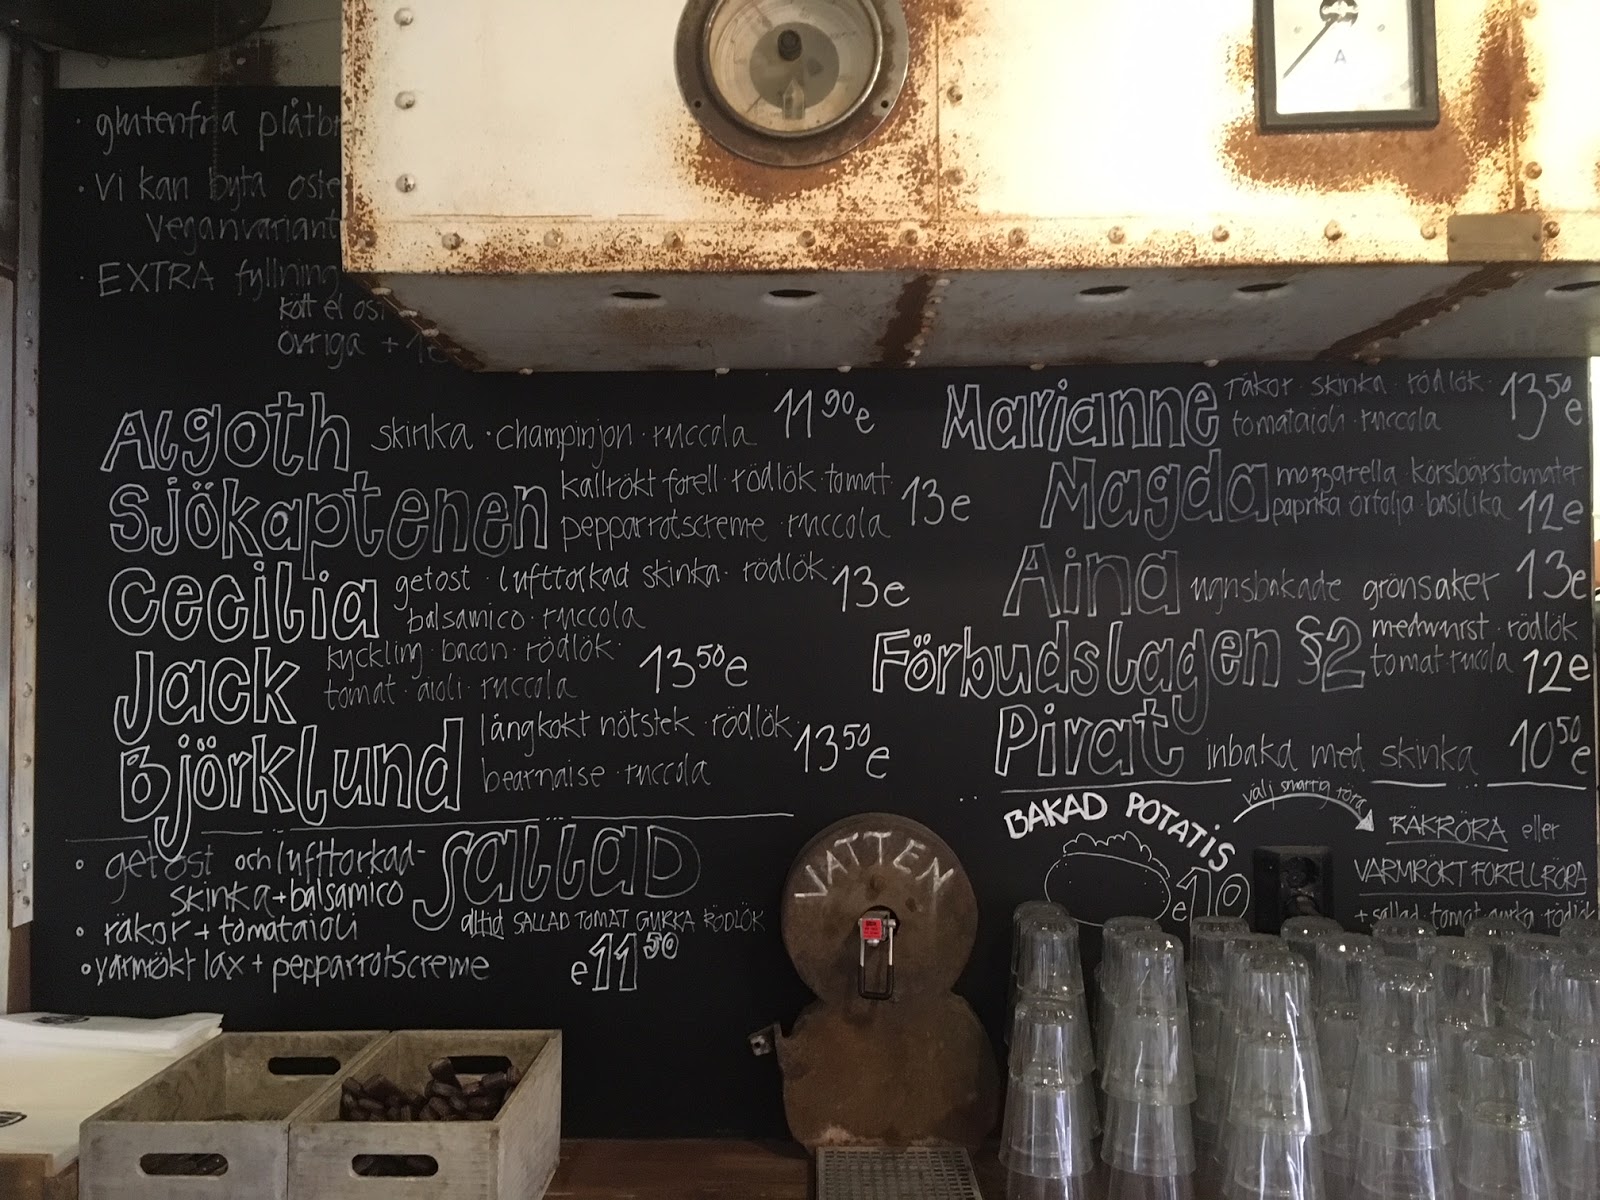 · glutenfria
· Vi kan byta
Veganvariant
· EXTRA fyllning
kött el
övriga +
Algoth skinka · champinjon · ruccola 11 90 e
Sjökaptenen kallrökt forell · rödlök · tomat
pepparrotscreme · ruccola 13 e
Cecilia getost · lufttorkad skinka · rödlök
balsamico · ruccola 13 e
Jack kyckling · bacon · rödlök
tomat · aioli · ruccola 13 50 e
Björklund långkokt nötstek · rödlök
bearnaise · ruccola 13 50 e
Marianne räkor · skinka · rödlök
tomataioli · ruccola 13 50 e
Magda mozzarella · körsbärstomater
paprika örtolja · basilika 12 e
Aina ugnsbakade grönsaker 13 e
Förbudslagen §2 medwurst · rödlök
tomat · rucola 12 e
Pirat inbaka med skinka 10 50 e
SALLAD
° getost och lufttorkad-
skinka + balsamico
° räkor + tomataioli
° varmrökt lax + pepparrotscreme
alltid SALLAD TOMAT GURKA RÖDLÖK
e 11 50
VATTEN
BAKAD POTATIS
välj smarrig röra
e 10
RÄKRÖRA eller
VARMRÖKT FORELLRÖRA
+ sallad · tomat · gurka · rödlök
A